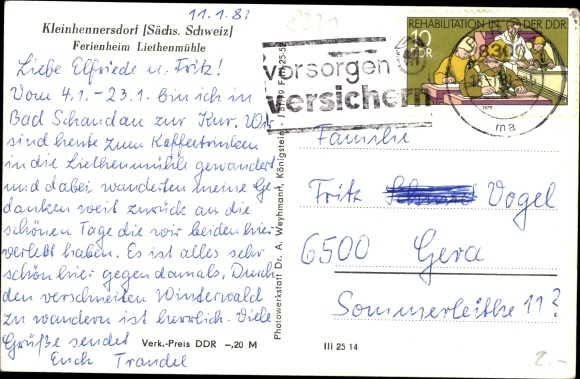 11.1.81
8221
Kleinhennersdorf [Sächs. Schweiz]
Ferienheim Liethenmühle
Liebe Elfriede u. Fritz!
Vom 4.1. – 23.1. bin ich in
Bad Schandau zur Kur. Wir
sind heute zum Kaffeetrinken
in die Liethenmühle gewandert
und dabei wanderten meine Ge
danken weit zurück an die
schönen Tage die wir beiden hier
verlebt haben. Es ist alles sehr
schön hier gegen damals. Durch
den verschneiten Winterwald
zu wandern ist herrlich. Viele
Grüße sendet
Euch Traudel
Verk.-Preis DDR –,20 M
Photowerkstatt Dr. A. Weyhmann, Königstein
III 25 14
REHABILITATION IN DER DDR
10
DDR
1979
8300
ma
vorsorgen
versichern
Familie
Fritz Vogel
6500 Gera
Sommerleithe 11?
2.-